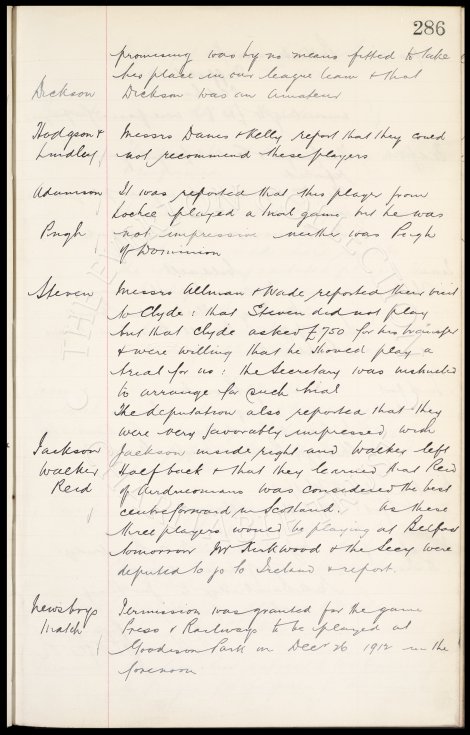 286
promising was by no means fitted to take
his place in our league team & that
Dickson Dickson was an amateur
Hodgson & Messrs Davies & Kelly report that they could
Lindley not recommend these players
Adamson It was reported that this player from
Lochee played a trial game but he was
Pugh not impressive neither was Pugh
of Dominion
Steven Messrs Allman & Wade reported their visit
to Clyde: that Steven did not play
but that Clyde asked £750 for his transfer
& were willing that he should play a
trial for us: the Secretary was instructed
to arrange for such trial
The deputation also reported that they
were very favorably impressed with
Jackson Jackson inside right and Walker left
Walker Half back & that they learned that Reid
Reid of Airdrieonians was considered the best
centreforward in Scotland. As these
three players would be playing at Belfast
tomorrow Mr Kirkwood & the Secy were
deputed to go to Ireland & report.
Newsboys Permission was granted for the game
Match Press & Railways to be played at
Goodison Park on Decr 26 1912 in the
forenoon